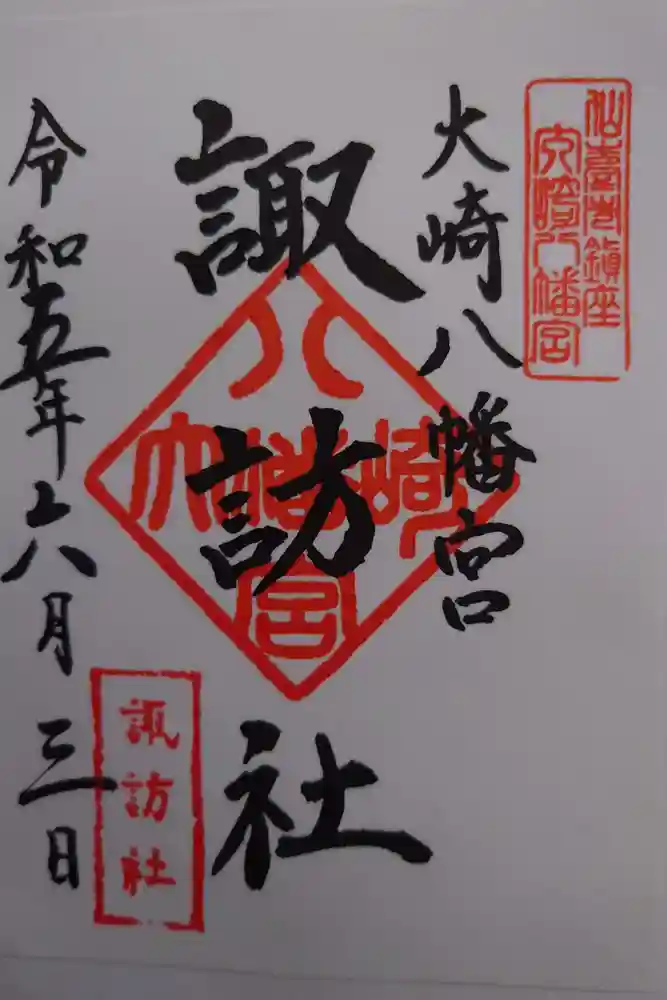 仙臺鎮座
八幡宮
大崎八幡宮
諏訪社
大崎八幡宮
令和五年六月三日
諏訪社